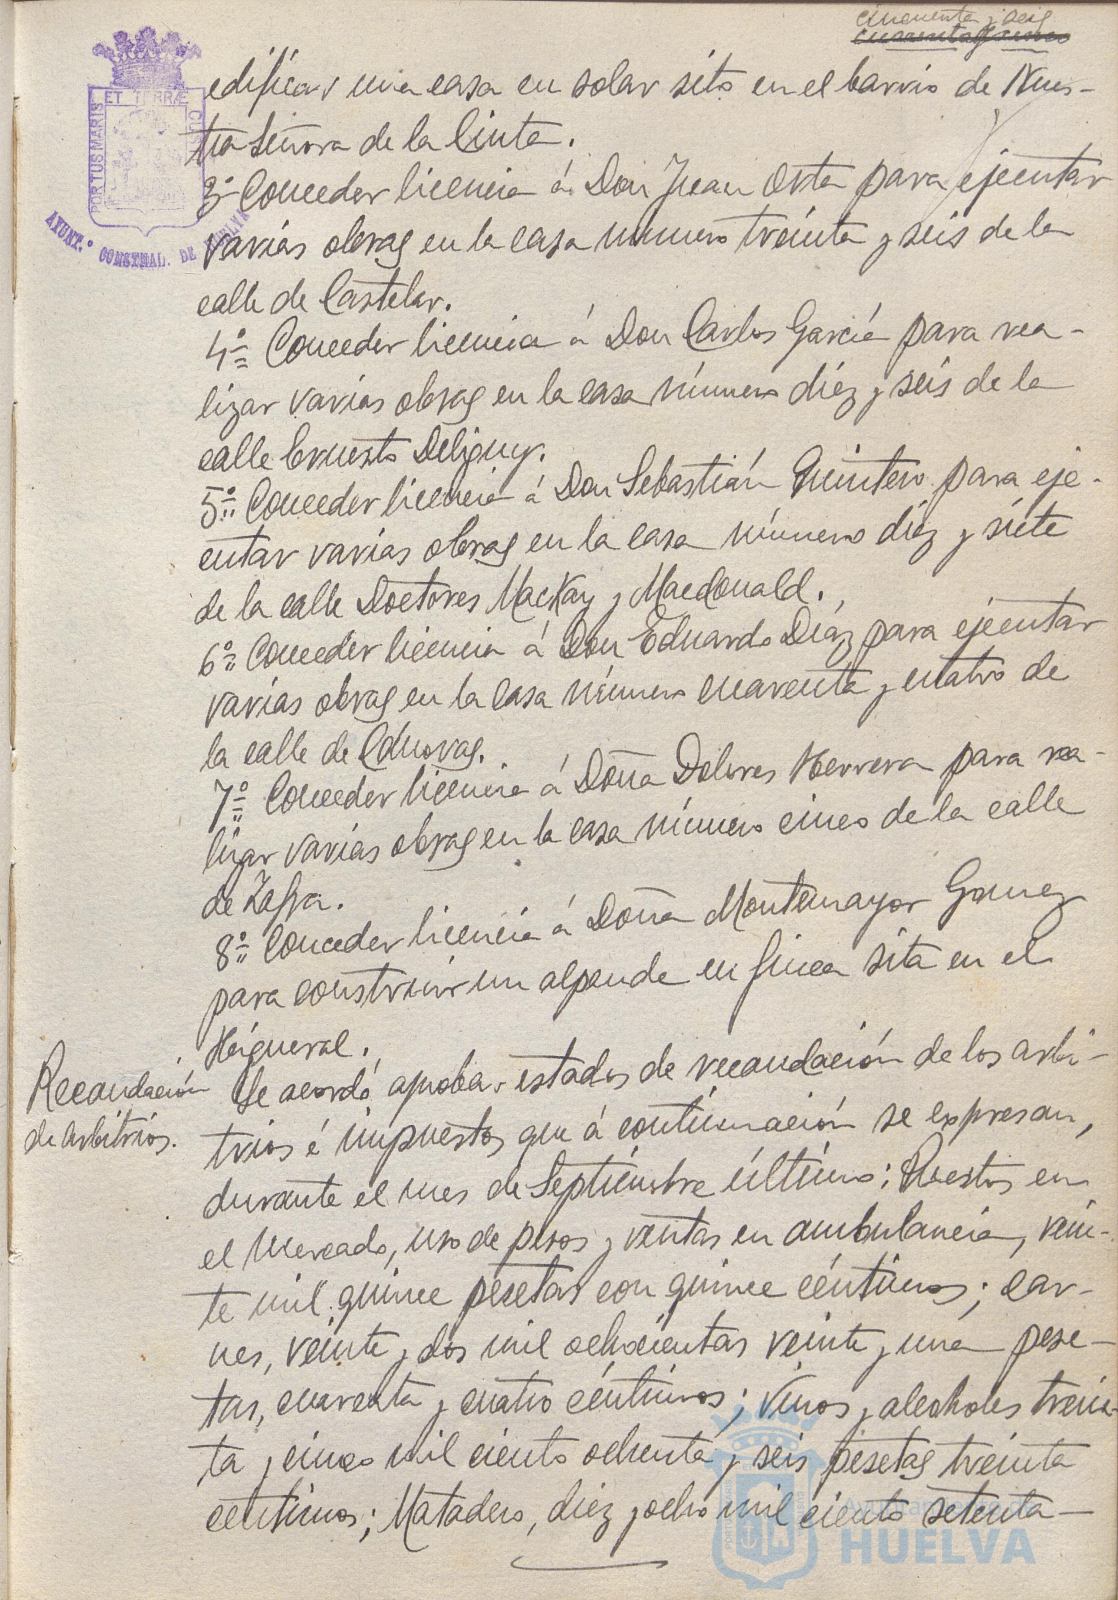 cincuenta y seis
edificar una casa en solar sito en el barrio de Nues-
tra Señora de la Cinta.
3º Conceder licencia á Don Juan Orta para ejecutar
varias obras en la casa número treinta y seis de la
calle de Castelar.
4º Conceder licencia á Don Carlos García para rea-
lizar varias obras en la casa número diez y seis de la
calle Ernesto Deligny.
5º Conceder licencia á Don Sebastián Quintero para eje-
cutar varias obras en la casa número diez y siete
de la calle Doctores MacKay y Macdonald.
6º Conceder licencia á Don Eduardo Díaz para ejecutar
varias obras en la casa número cuarenta y cuatro de
la calle de Cánovas.
7º Conceder licencia á Doña Dolores Herrera para rea-
lizar varias obras en la casa número cinco de la calle
de Zafra.
8º Conceder licencia á Doña Montemayor Gomez
para construir un alpende en finca sita en el
Higueral.
Recaudación
de arbitrios.
Se acordó aprobar estados de recaudación de los arbi-
trios é impuestos que á continuación se expresan,
durante el mes de Septiembre último: Puestos en
el Mercado, uso de pesos y ventas en ambulancia, vein-
te mil quince pesetas con quince céntimos; car-
nes, veinte y dos mil ochocientas veinte y una pese-
tas, cuarenta y cuatro céntimos; vinos y alcoholes trein-
ta y cinco mil ciento ochenta y seis pesetas treinta
centimos; Matadero, diez y ocho mil ciento setenta—
PORTUS MARIS
ET TERRÆ
AYUNT.º CONSTNAL. DE
Ayuntamiento de
HUELVA